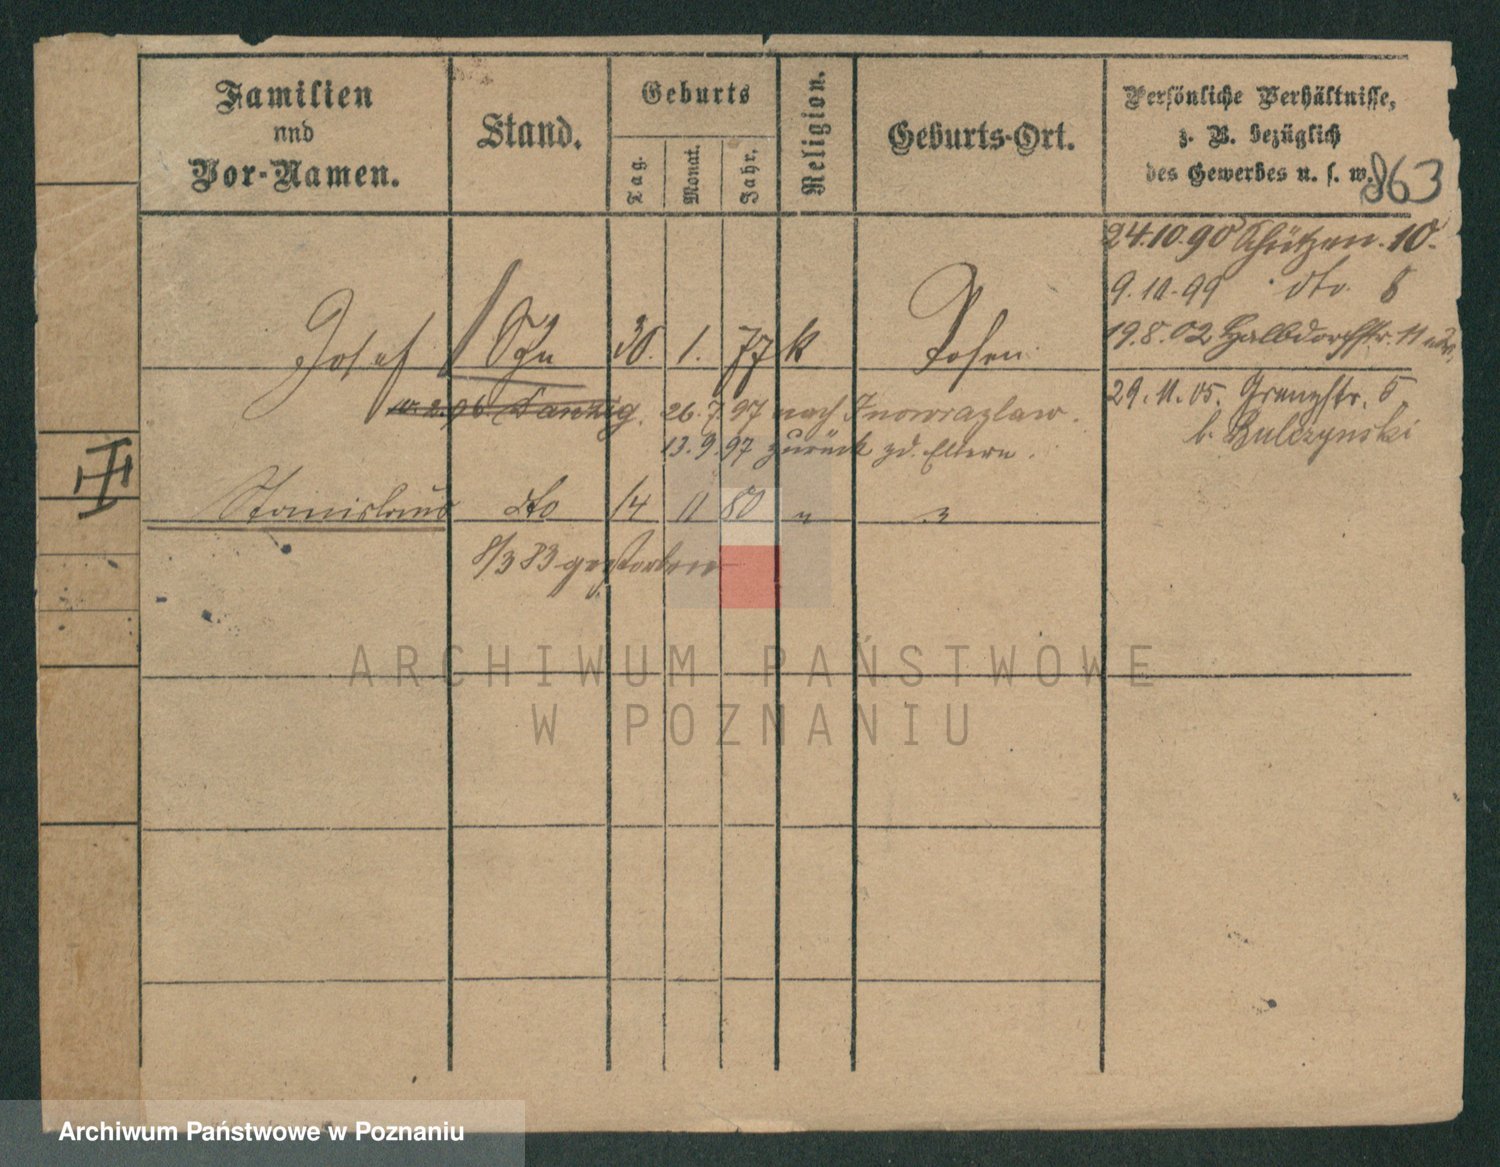 Familien
und
Vor-Namen.
Stand.
Geburts
Tag.
Monat.
Jahr.
Religion.
Geburts-Ort.
Persönliche Verhältnisse,
z. B. bezüglich
des Gewerbes u. s. w.
863
24.10.90 Schützen. 10.
9.10.99 dto. 8
Josef Sohn 30. 1. 77 k Posen
19.8.02 Halbdorfstr. 11
Danzig. 26.7.97 nach Inowrazlaw.
29.11.05. Grenzstr. 5
13.9.97 zurück z d. Eltern.
b. Bulczynski
III
Stanislaus dto 14 11 80 " "
8/3 83 gestorben
ARCHIWUM PAŃSTWOWE
W POZNANIU
Archiwum Państwowe w Poznaniu